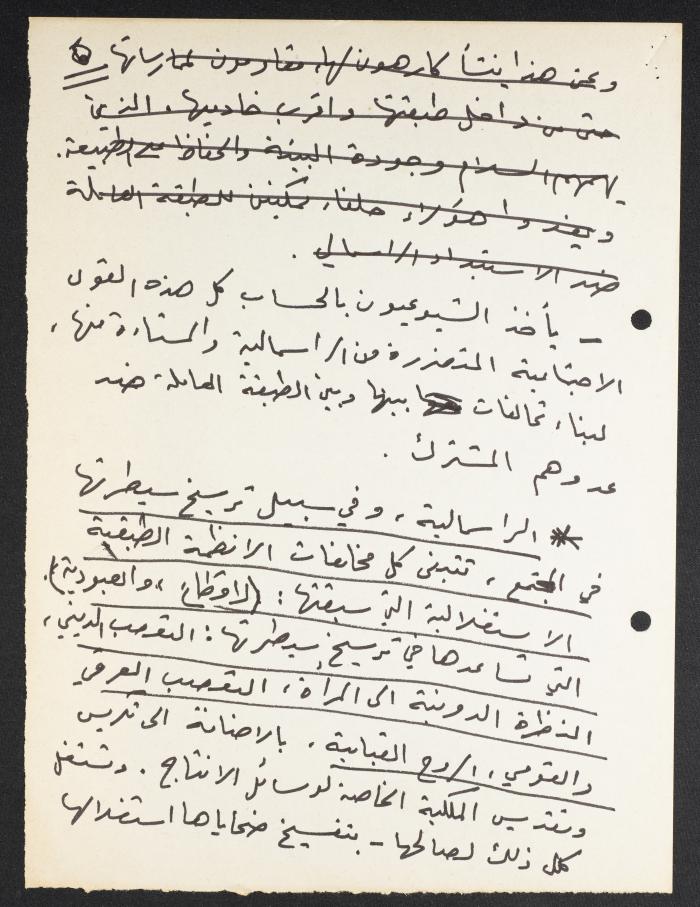 ومن هذا ينشأ كارهون لها، مقاومون لممارساتها
حتى من داخل طبقتها واقرب خادميها، الذين
يهمهم السلام وجودة البيئة والحفاظ على الطبيعة.
ويغدوا هؤلاء حلفاء ممكنين للطبقة العاملة
ضد الاستبداد الرأسمالي .
– يأخذ الشيوعيون بالحساب كل هذه القوى
الاجتماعية المتضررة من الرأسمالية والمستاءة منها،
لبناء تحالفات بينها وبين الطبقة العاملة ضد
عدوهم المشترك .
* الراسمالية، وفي سبيل ترسيخ سيطرتها
في المجتمع، تتبنى كل مخلفات الانظمة الطبقية
الاستغلالية التي سبقتها: (الاقطاع، والعبودية).
التي تساعدها في ترسيخ سيطرتها: التعصب الديني،
النظرة الدونية الى المرأة، التعصب العرقي
والقومي، الروح القبلية، بالاضافة الى تكريس
وتقديس الملكية الخاصة لوسائل الانتاج. وتستغل
كل ذلك لصالحها – بتفسيخ ضحاياها استغلالها